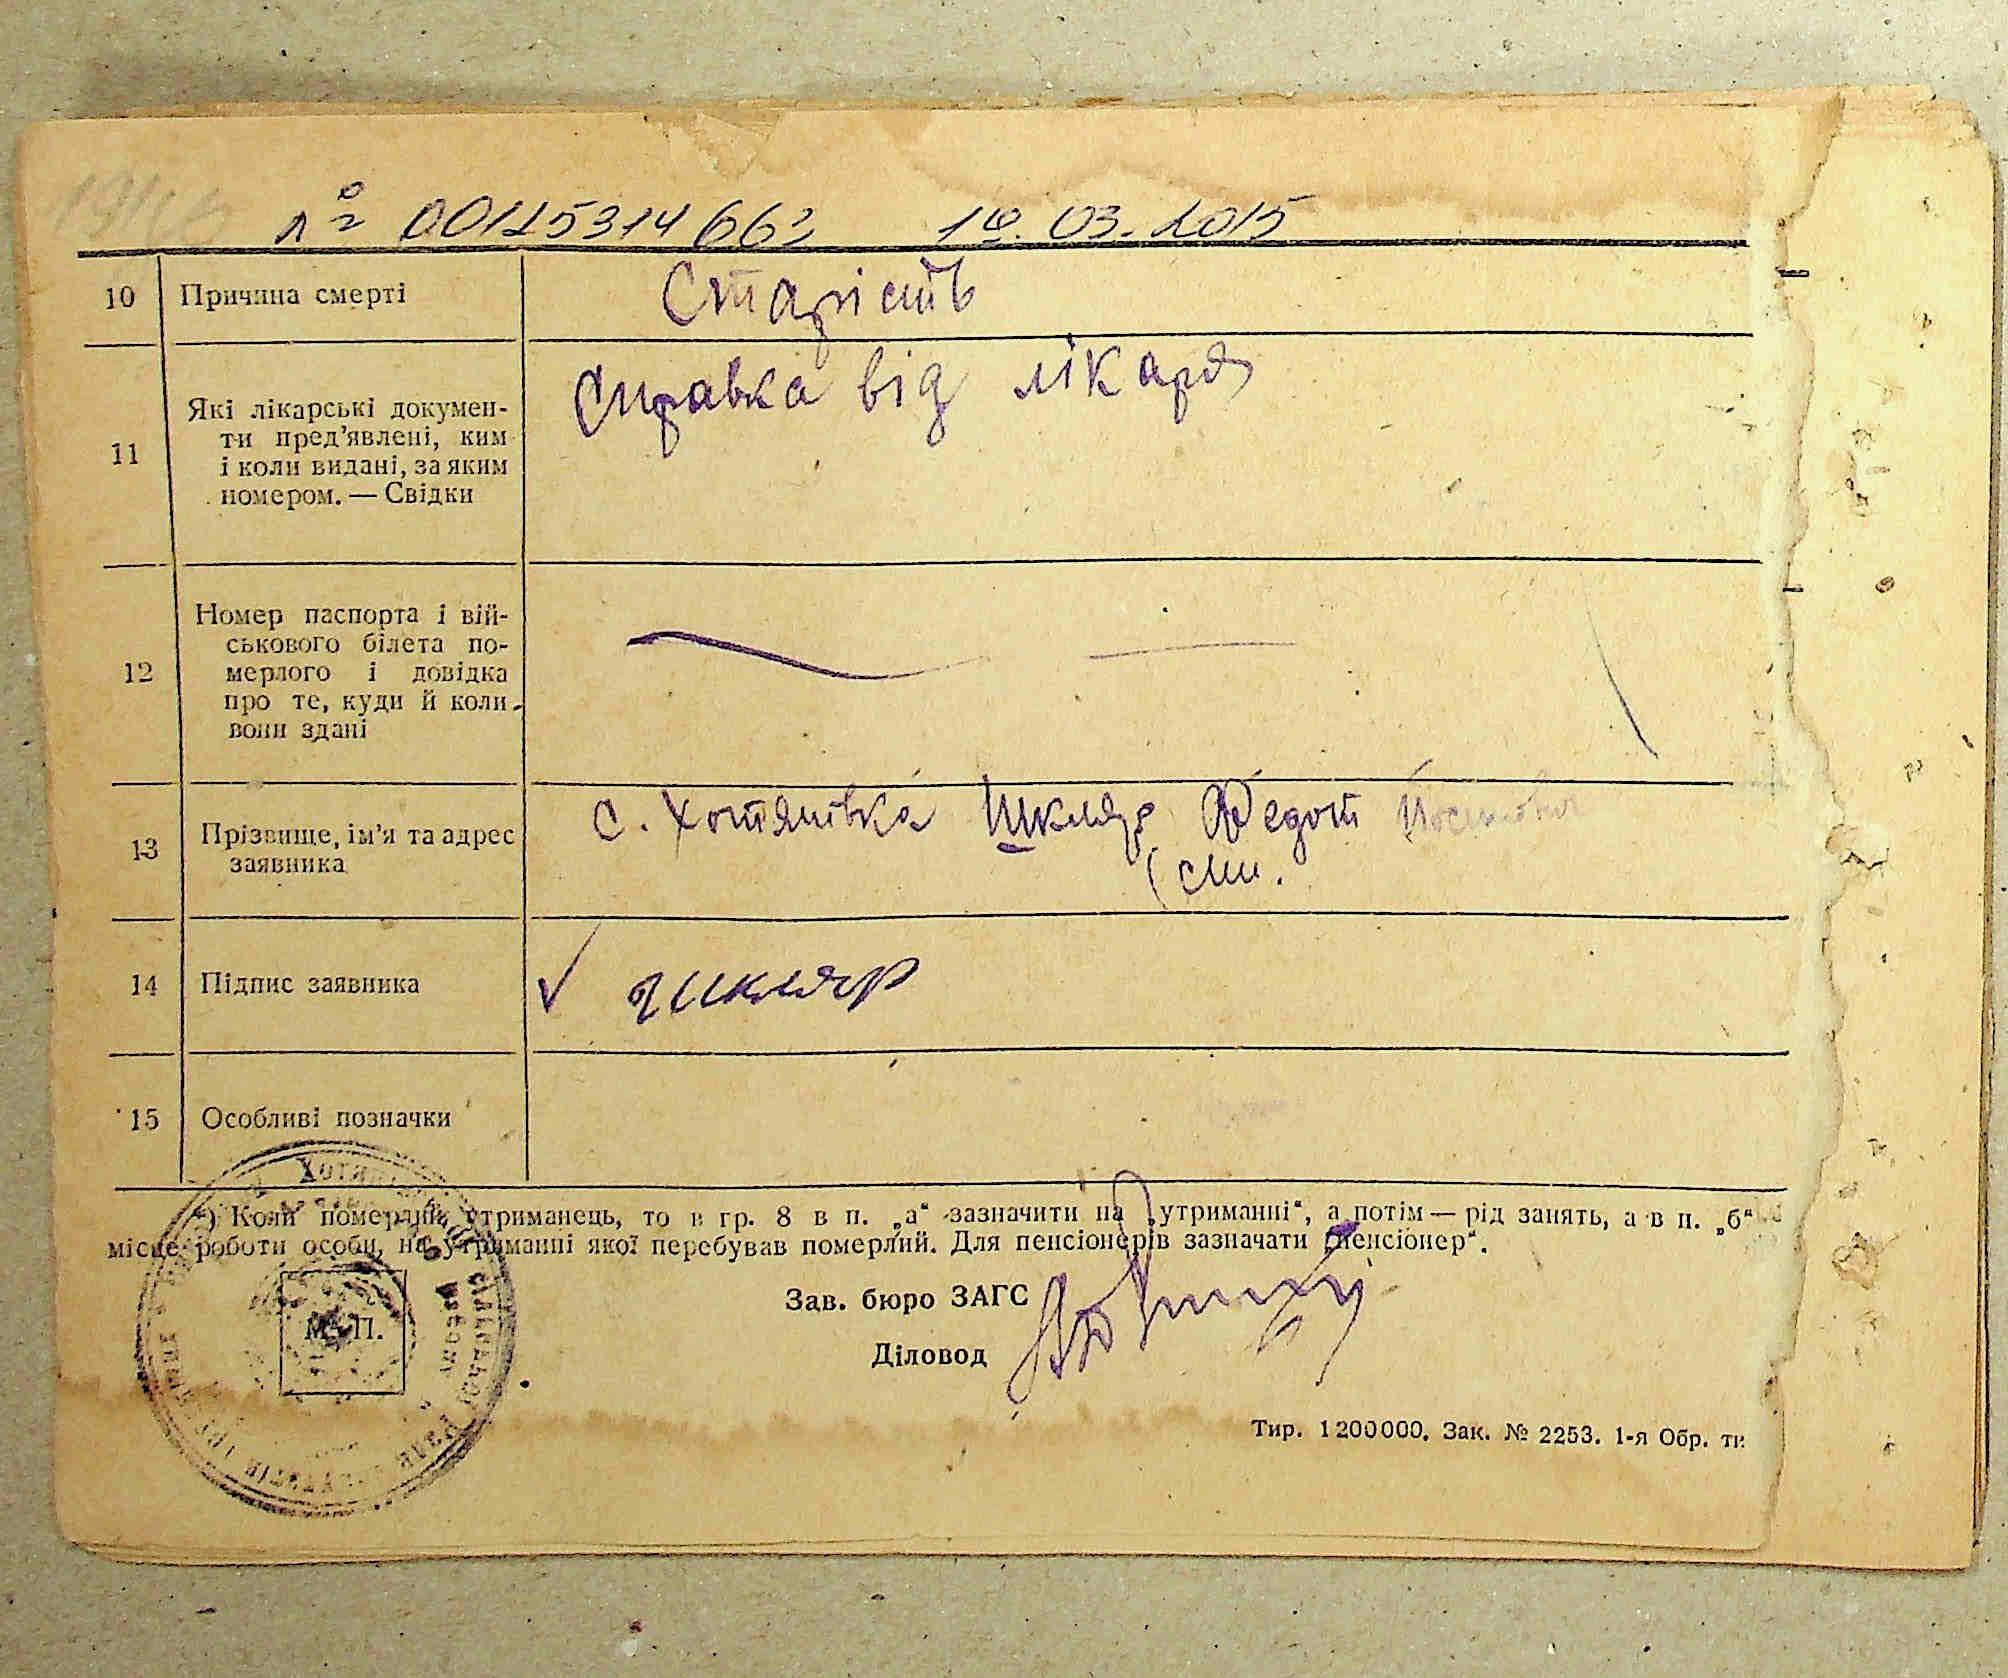 № 00115314663 10.03.2015
10 Причина смерті Старість
11 Які лікарські докумен-
ти пред’явлені, ким
і коли видані, за яким
номером. — Свідки
Справка від лікаря
12 Номер паспорта і вій-
ськового білета по-
мерлого і довідка
про те, куди й коли
вони здані
13 Прізвище, ім’я та адрес
заявника
с. Хотянівка Шкляр Федот
14 Підпис заявника Шкляр
15 Особливі позначки
*) Коли померлий утриманець, то в гр. 8 в п. „а“ зазначити на „утриманні“, а потім — рід занять, а в п. „б“
місце роботи особи, на утриманні якої перебував померлий. Для пенсіонерів зазначати „пенсіонер“.
М. П.
Зав. бюро ЗАГС
Діловод
Тир. 1200000. Зак. № 2253. 1-я Обр. ти